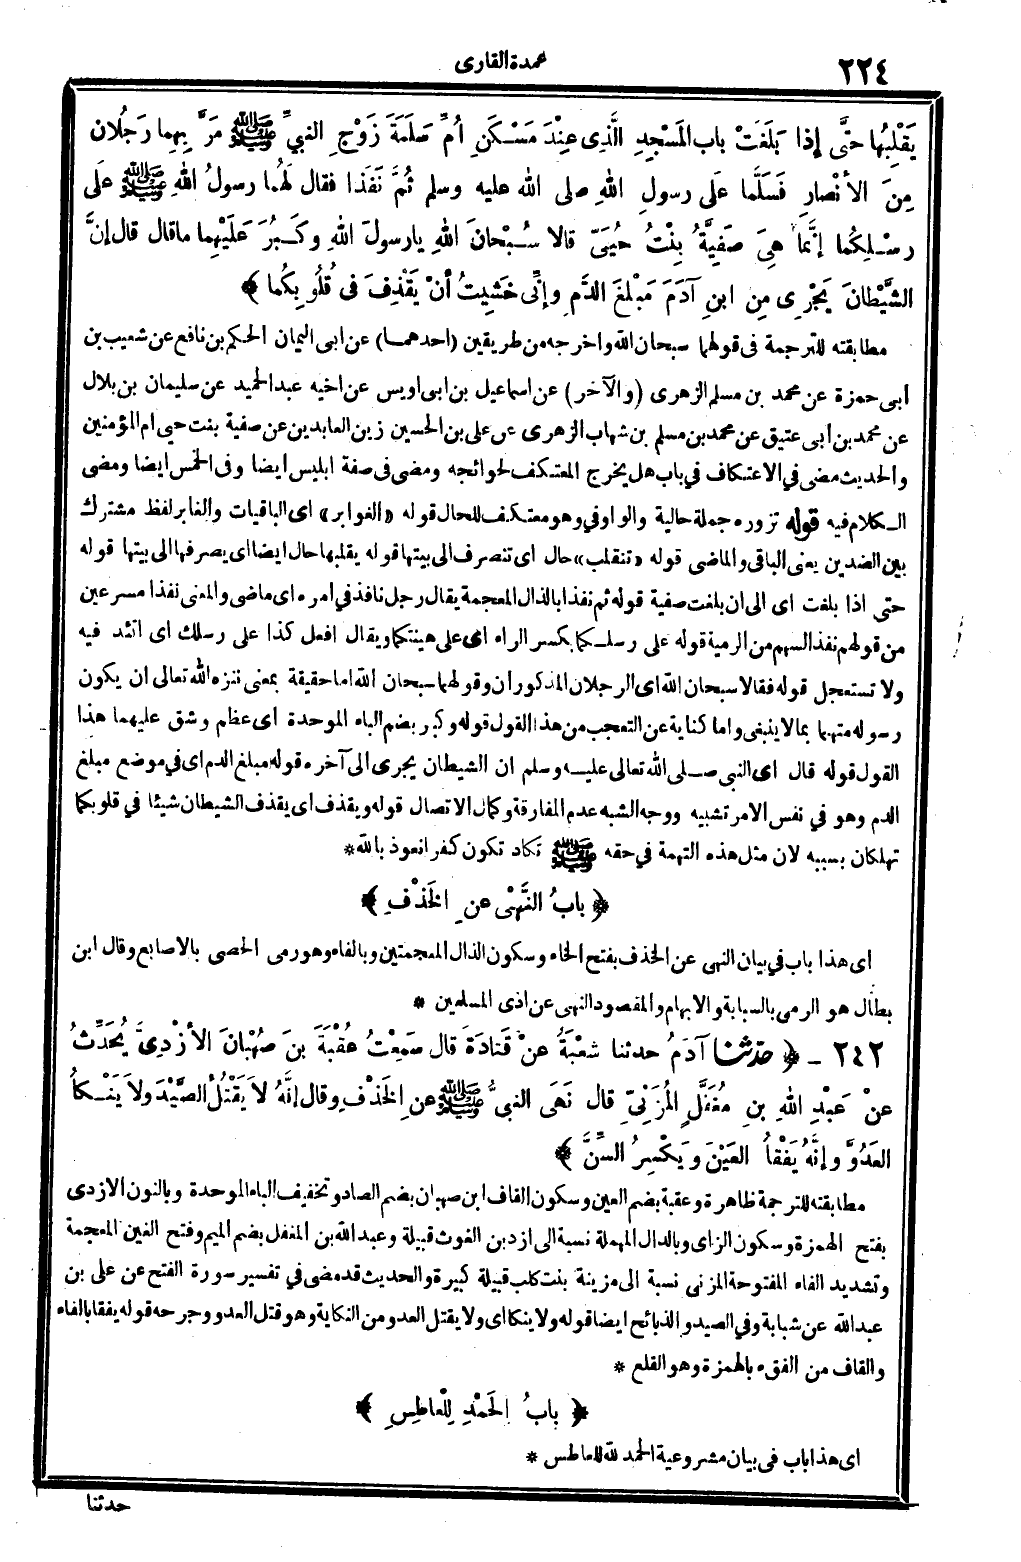 ٢٢٤
عمدة القارى
يَقْلِبُها حتَّى إذا بَلَغَتْ بابَ المَسْجِدِ الَّذِى عِنْدَ مَسْكَنِ أُمِّ سَلَمَةَ زَوْجِ النبيِّ ﷺ مَرَّ بِهِما رَجُلان
مِنَ الأنْصارِ فَسَلَّما عَلَى رسولِ اللهِ صلى الله عليه وسلم ثُمَّ نَفَذا فقال لَهُما رسولُ اللهِ ﷺ عَلَى
رِسْلِكُما إنَّما هِىَ صَفِيَّةُ بِنْتُ حُيَىّ قالا سُبْحانَ اللهِ يارسولَ اللهِ وكَبُرَ عَلَيْهِما ماقال قال إنَّ
الشَّيْطانَ يَجْرِى مِن ابنِ آدَمَ مَبْلَغَ الدَّمِ وإنِّى خَشِيتُ أنْ يَقْذِفَ فى قُلُوبِكُما ﴾
مطابقته للترجمة فى قولهما سبحان الله واخرجه من طريقين (احدهما) عن ابى اليمان الحكم بن نافع عن شعيب بن
أبى حمزة عن محمد بن مسلم الزهرى (والآخر) عن اسماعيل بن ابى اويس عن اخيه عبد الحميد عن سليمان بن بلال
عن محمد بن ابى عتيق عن محمد بن مسلم بن شهاب الزهرى عن على بن الحسين زين العابدين عن صفية بنت حيى ام المؤمنين
والحديث مضى في الاعتكاف في باب هل يخرج المعتكف لحوائجه ومضى فى صفة ابليس ايضا وفى الخمس ايضا ومضى
الكلام فيه قوله تزوره جملة حالية والواو في وهو معتكف للحال قوله «الغوابر» اى الباقيات والغابر لفظ مشترك
بين الضدين يعنى الباقى والماضى قوله «تنقلب» حال اى تنصرف الى بيتها قوله يقلبها حال ايضا اى يصرفها الى بيتها قوله
حتى اذا بلغت اى الى ان بلغت صفية قوله ثم نفذا بالذال المعجمة يقال رجل نافذ في امره اى ماضى والمعنى نفذا مسرعين
من قولهم نفذ السهم من الرمية قوله على رسلكما بكسر الراء اى على هينتكما ويقال افعل كذا على رسلك اى اتئد فيه
ولا تستعجل قوله فقالا سبحان الله اى الرجلان المذكوران وقولهما سبحان الله اما حقيقة بمعنى تنزه الله تعالى ان يكون
رسوله متهما بما لا ينبغى واما كناية عن التعجب من هذا القول قوله وكبر بضم الباء الموحدة اى عظم وشق عليهما هذا
القول قوله قال اى النبى صلى الله تعالى عليه وسلم ان الشيطان يجرى الى آخره قوله مبلغ الدم اى في موضع مبلغ
الدم وهو في نفس الامر تشبيه ووجه الشبه عدم المفارقة وكمال الاتصال قوله ويقذف اى يقذف الشيطان شيئا في قلوبكما
تهلكان بسببه لان مثل هذه التهمة في حقه ﷺ تكاد تكون كفرا نعوذ بالله *
﴿ بابُ النَّهْىِ عنِ الخَذْفِ ﴾
اى هذا باب في بيان النهى عن الخذف بفتح الخاء وسكون الذال المعجمتين وبالفاء وهو رمى الحصى بالاصابع وقال ابن
بطال هو الرمى بالسبابة والابهام والمقصود النهى عن اذى المسلمين *
٢٤٢ ـ ﴿ حدّثنا آدَمُ حدثنا شعْبَةُ عنْ قَتادَةَ قال سَمِعْتُ عُقْبَةَ بنَ صُهْبَانَ الأزْدِىَّ يُحَدِّثُ
عنْ عَبْدِ اللهِ بنِ مُغَفَّلٍ المُزَنِىّ قال نَهَى النبىُّ ﷺ عنِ الخَذْفِ وقال إنَّهُ لاَ يَقْتُلُ الصَّيْدَ ولاَ يَنْكأُ
العَدُوَّ وإنَّهُ يَفْقأُ العَيْنَ ويَكْسِرُ السِّنَّ ﴾
مطابقته للترجمة ظاهرة وعقبة بضم العين وسكون القاف ابن صهبان بضم الصاد وتخفيف الباء الموحدة وبالنون الازدى
بفتح الهمزة وسكون الزاى وبالدال المهملة نسبة الى ازد بن الغوث قبيلة وعبد الله بن المغفل بضم الميم وفتح الغين المعجمة
وتشديد الفاء المفتوحة المزنى نسبة الى مزينة بنت كلب قبيلة كبيرة والحديث قد مضى في تفسير سورة الفتح عن على بن
عبد الله عن شبابة وفي الصيد والذبائح ايضا قوله ولا ينكا اى ولا يقتل العدو من النكاية وهو قتل العدو وجرحه قوله يفقا بالفاء
والقاف من الفقء بالهمزة وهو القلع *
﴿ بابُ الحَمْدِ لِلْعاطِسِ ﴾
اى هذا باب فى بيان مشروعية الحمد لله للعاطس *
حدثنا